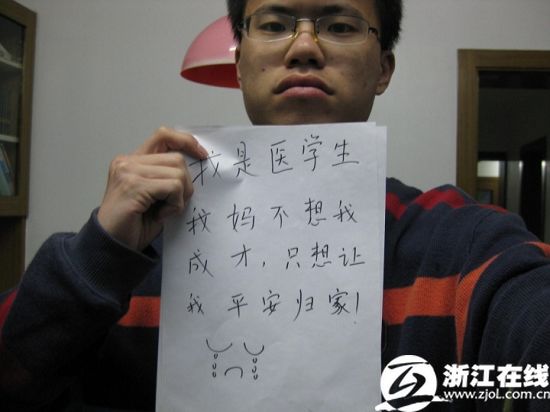 我是医学生
我妈不想我
成才，只想让
我平安归家！
浙江在线
www.zjol.com.cn